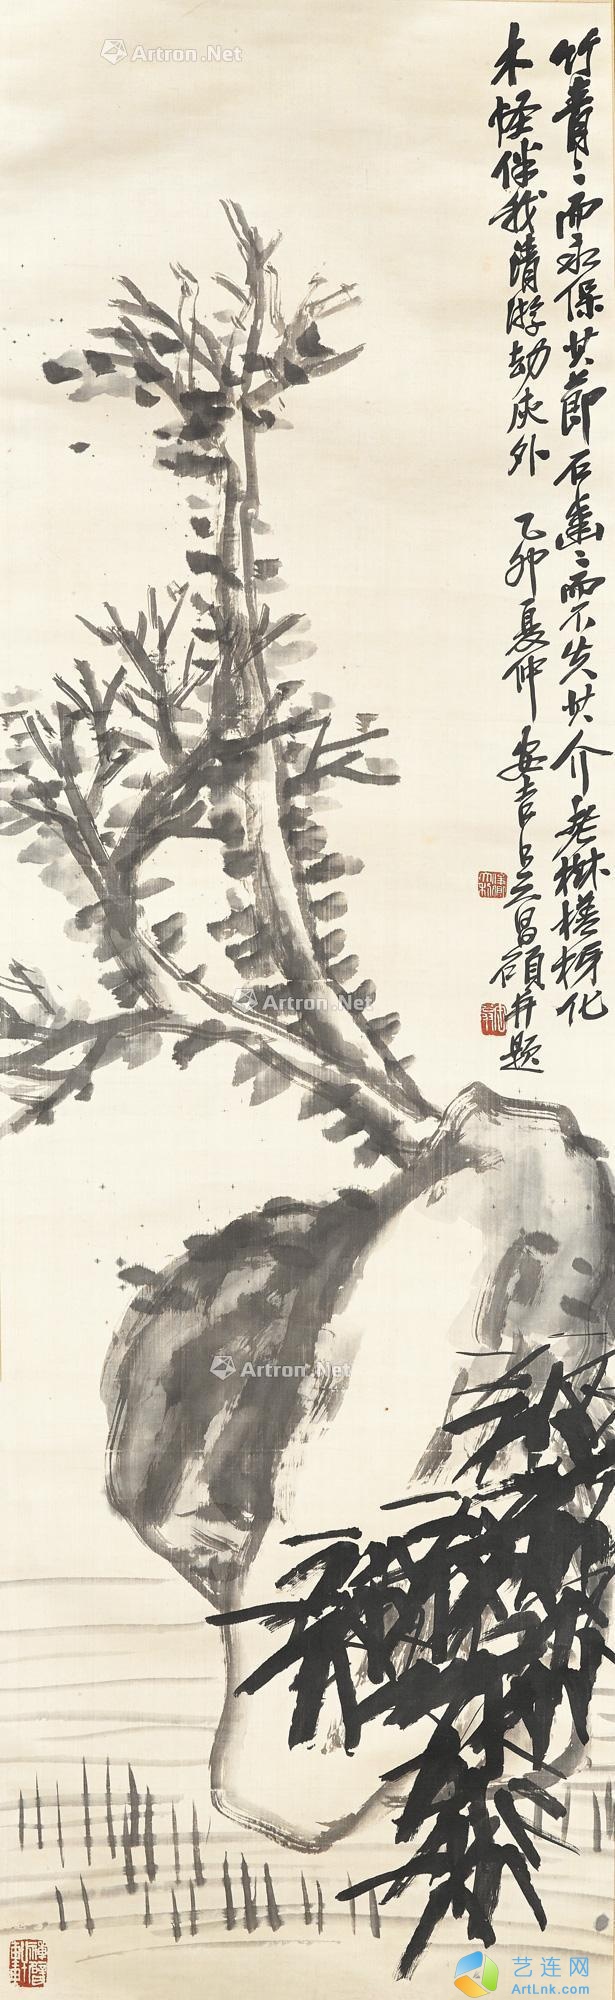 竹青〻而永保其節石崖〻而不失其介老樹槎枒化
木怪伴我清游劫灰外　乙卯夏仲　安吉吳昌碩并題
Artron.Net
Artron.Net
Artron.Net
Artron.Net
艺连网
ArtLink.com